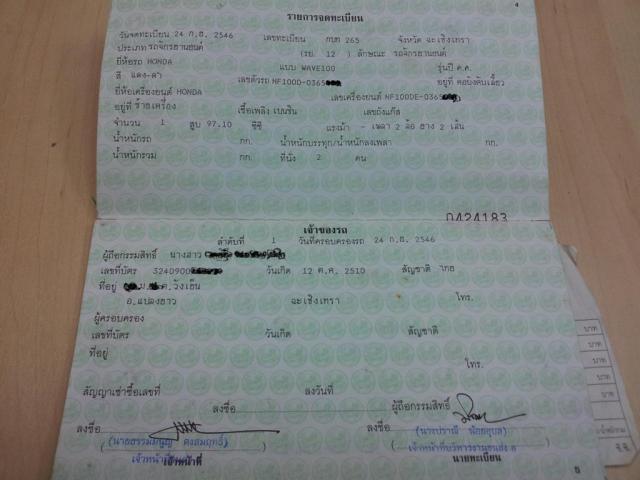 4
รายการจดทะเบียน
วันจดทะเบียน 24 ก.ย. 2546 เลขทะเบียน กบท 265 จังหวัด ฉะเชิงเทรา
ประเภท รถจักรยานยนต์ (รย. 12 ) ลักษณะ รถจักรยานยนต์
ยี่ห้อรถ HONDA แบบ WAVE100 รุ่นปี ค.ศ.
สี แดง-ดำ เลขตัวรถ NF100D-0365 อยู่ที่ คอบังคับเลี้ยว
ยี่ห้อเครื่องยนต์ HONDA เลขเครื่องยนต์ NF100DE-0365
อยู่ที่ ข้างเครื่อง เชื้อเพลิง เบนซิน เลขถังแก๊ส
จำนวน 1 สูบ 97.10 ซีซี แรงม้า - เพลา 2 ล้อ ยาง 2 เส้น
น้ำหนักรถ กก. น้ำหนักบรรทุก/น้ำหนักลงเพลา กก.
น้ำหนักรวม กก. ที่นั่ง 2 คน
0424183
เจ้าของรถ
ลำดับที่ 1 วันที่ครอบครองรถ 24 ก.ย. 2546
ผู้ถือกรรมสิทธิ์ นางสาว
เลขที่บัตร 3240900 วันเกิด 12 ต.ค. 2510 สัญชาติ ไทย
ที่อยู่ ต.วังเย็น
อ.แปลงยาว ฉะเชิงเทรา โทร.
ผู้ครอบครอง
เลขที่บัตร วันเกิด สัญชาติ
ที่อยู่
โทร.
สัญญาเช่าซื้อเลขที่ ลงวันที่
ลงชื่อ ผู้ถือกรรมสิทธิ์
ลงชื่อ ลงชื่อ
(นายธรรมนูญ คงสมฤทธิ์) (นางปราณี น้อยอุบล)
เจ้าหน้าที่ เจ้าหน้าที่บริหารงานขนส่ง
เจ้าหน้าที่ นายทะเบียน
5
บาท
บาท
บาท
บาท
บาท